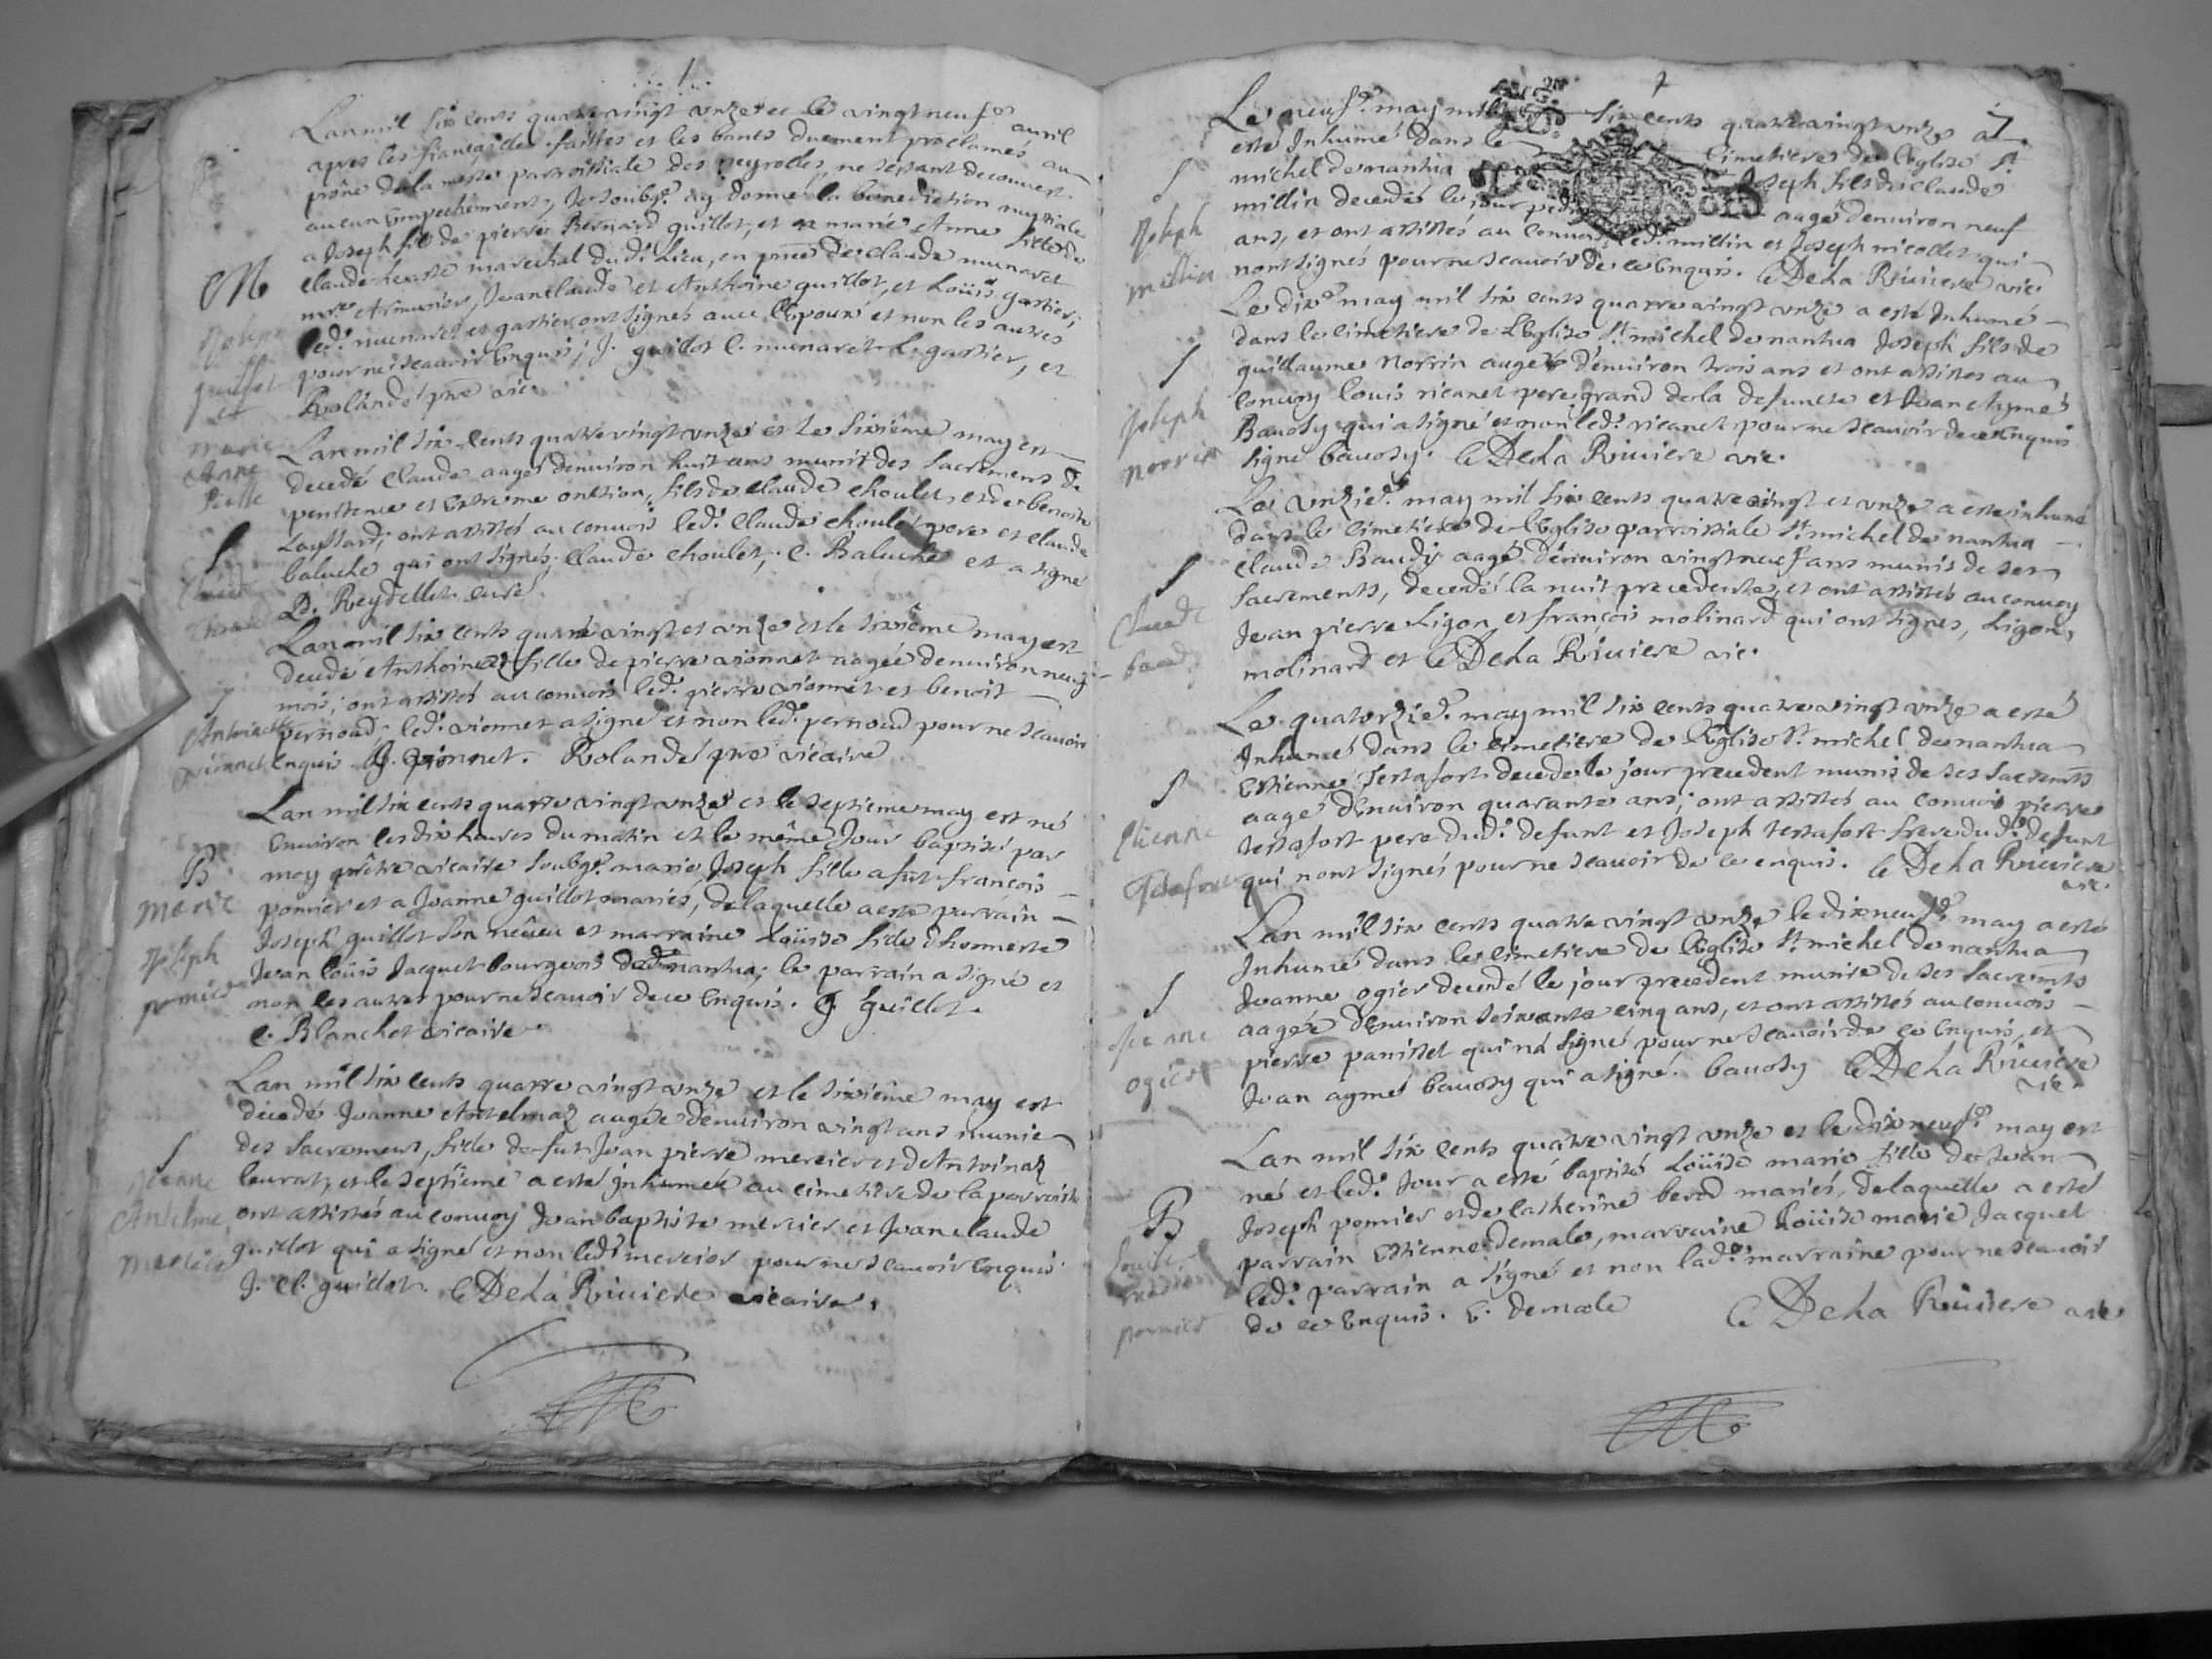 Lan mil six cents quatre vingt unze et le vingt neuf.e avril
apres les fiançailles faittes et les bancs duement proclamés au
prône de la messe parroissiale des neyrolles, ne sestant decouvert
aucun Empechement, Je soubg.é ay donné la benediction nuptiale
a Joseph fils de pierre Bernard guillot, et marie Anne fille de
claude marechal dud.t Lieu, en pñce de claude munaret
m.re Armurier, Jean claude et Anthoine guillot, et Loüis gartier;
led.t munaret et gartier ont signés avec lEpoux et non les autres
pour ne scavoir Enquis, J. guillot C. munaret L. gartier, et
Rolandé ptre vic.
M
Joseph
guillot
et
marie
Anne
Lan mil six cents quatre vingt unze et le sixiême may est
decedé claude aagé denviron huit ans munit des sacremens de
penitence et Extreme onction, fils de claude choulet et de benoite
Layssard; ont assistés au convois led.t claude choulet pere et claude
baluche qui ont signés, claude choulet, C. Baluche et a signé
D. Reydellet curé.
S
Claude
Lan mil six cents quatre vingt et unze et le sixiême may est
decedé Anthoine fille de pierre vionnet aagée denviron neuf
mois; ont assistés au convois led.t pierre vionnet et benoit
pernoud led.t vionnet a signé et non led.t pernoud pour ne scavoir
Enquis P. vionnet. Rolandé ptre vicaire
S
Antoinette
vionnet
Lan mil six cents quatre vingt unze et le septieme may est né
Environ les dix heures du matin et le même Jour baptisé par
moy prêtre vicaire soubg.é marie Joseph fille a fut françois
pomier et a Jeanne guillot mariés, de laquelle a esté parrain
Joseph guillot son nêveu et marraine Loüise fille dhonneste
Jean loüis Jacquet bourgeois dud. nantua; le parrain a signé et
non les autres pour ne scavoir de ce Enquis. J. guillot.
C. Blanchet vicaire
B
Marie
Joseph
pomier
Lan mil six cents quatre vingt unze et le sixiême may est
decedé Jeanne Antelmaz aagée denviron vingt ans munie
des sacremens, fille de fut Jean pierre mercier et dAntoinaz
leurat, et le septieme a esté inhumée au cimetiere de la parroisse
ont assistés au convoy Jean baptiste mercier et Jean claude
guillot qui a signé et non led.t mercier pour ne scavoir Enquis
J. Cl. guillot. C DeLa Riviere vicaire.
S
Jeanne
Antelme
Mercier
7
Le neuf.e may mil six cents quatre vingt unze a
esté Inhumé dans le Cimetiere de lEglise S.t
michel de nantua Joseph fils de claude
millin decedé le jour aagé denviron neuf
ans, et ont assistés au convois led.t millin et Joseph nicollet qui
nont signés pour ne scavoir de ce Enquis. C DeLa Riviere vic.
S
Joseph
millin
Le dix.e may mil six cents quatre vingt unze a esté Inhumé
dans le cimetiere de LEglise S.t michel de nantua Joseph fils de
guillaume Norrin aagé denviron trois ans et ont assistes au
convoy Louis ricanet pere grand de la defuncte et Jean Aymé
Bavosy qui a signé et non led.t ricanet pour ne scavoir de ce Enquis
signé bavosy. C DeLa Riviere vic.
S
Joseph
norrin
Le unzie.e may mil six cents quatre vingt et unze a este inhumé
dans le Cimetiere de lEglise parroissiale S.t michel de nantua
claude Baudy aagé denviron vingt neuf ans munis de ses
sacrements, decedé la nuit precedente, et ont assistés au convoy
Jean pierre Ligon et françois molinard qui ont signes, Ligon,
molinard et C DeLa Riviere vic.
S
Claude
baudy
Le quatorzie.e may mil six cents quatre vingt unze a esté
Inhumé dans le cimetiere de lEglise S.t michel de nantua
Estienne Testafort decede le jour precedent munis de ses sacrem.ts
aagé denviron quarante ans; ont assistés au convois pierre
testafort pere dud.t defunt et Joseph testafort frere dud.t defunt
qui nont signés pour ne scavoir de ce enquis. C DeLa Riviere
vic.
S
Etienne
Lan mil six cents quatre vingt unze le dixneuf.e may a esté
Inhumé dans le cimetiere de lEglise S.t michel de nantua
Jeanne ogier decedé le jour precedent munie de ses sacrem.ts
aagée denviron soixante cinq ans, et ont assistés au convois
pierre panisset qui na signé pour ne scavoir de ce Enquis, et
Jean aymé bavosy qui a signé. bavosy C DeLa Riviere
vic.
S
Jeanne
ogier
Lan mil six cents quatre vingt unze et le dixneuf.e may est
né et led.t Jour a esté baptisé Loüise marie fille de Jean
Joseph pomier et de catherine berod mariés, de laquelle a esté
parrain Estienne demale, marraine Loüise marie Jacquet
led.t parrain a signé et non lad.te marraine pour ne scavoir
de ce Enquis. E. demale C DeLa Riviere vic
B
Louise
pomier